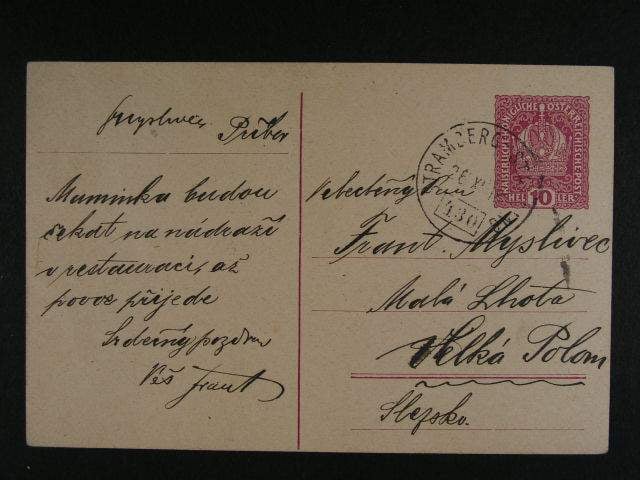 Příbor
Maminka budou
čekat na nádraží
v restauraci, až
povoz přijede
Srdečný pozdrav
Váš Frant
KAISERLICHE KÖNIGLICHE ÖSTERREICHISCHE POST
10
HELLER
TRAMBERG
130
Velectěný Pan
Frant. Myslivec
Malá Lhota
Velká Polom
Slezsko.